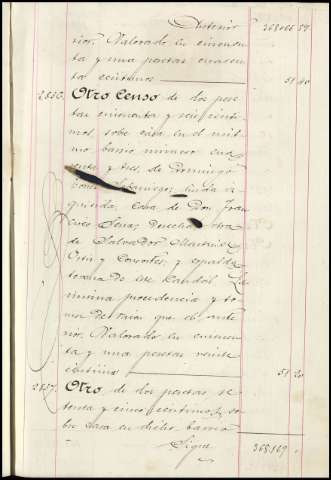 Anterior 368,066 59
rior. Valorado en cincuen
ta y una pesetas cuaren
ta centimos 51 40
2856. Otro Censo de dos pese
tas cincuenta y seis centi
mos, sobre casa en el mis
mo barrio número cua
renta y tres, de Domingo
linda iz
quierda, Casa de Don Fran
cisco Senas, derecha otra
de Salvador Martinez
Ortiz y Couortes, y espalda
terreno de este Caudal. La
misma procedencia y to
ma de razon que el ante
rior. Valorado en cincuen
ta y una pesetas veinte
centimos 51 20
2857. Otro, de dos pesetas se
tenta y cinco centimos, so
bre casa en dicho barrio
Sigue 368,169